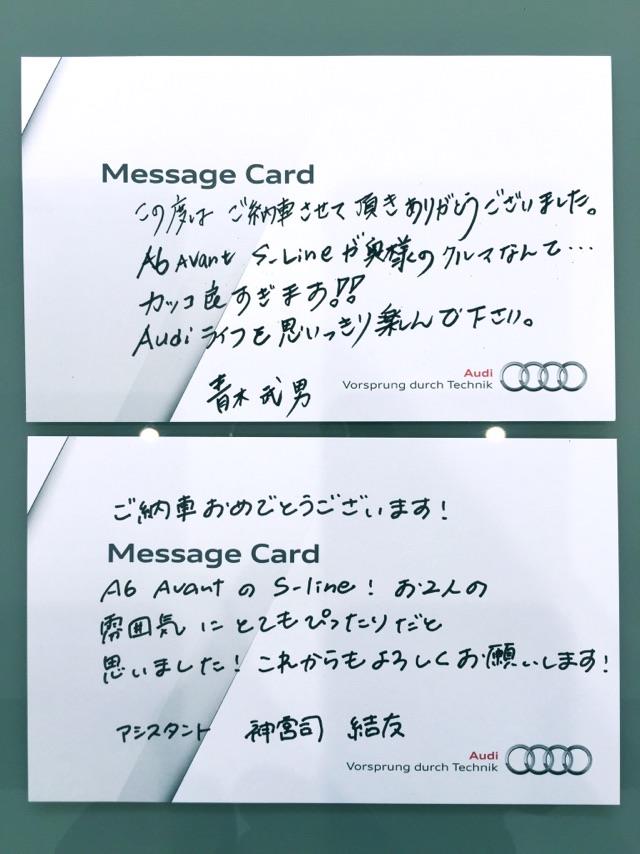 Message Card
この度は ご納車させて頂きありがとうございました。
A6 Avant S-Lineが奥様のクルマなんて…
カッコ良すぎます!!
Audiライフを思いっきり楽しんで下さい。
青木 武男
Audi
Vorsprung durch Technik
ご納車おめでとうございます!
Message Card
A6 AvantのS-line! お2人の
雰囲気にとてもぴったりだと
思いました! これからもよろしくお願いします!
アシスタント 神宮司 結友
Audi
Vorsprung durch Technik